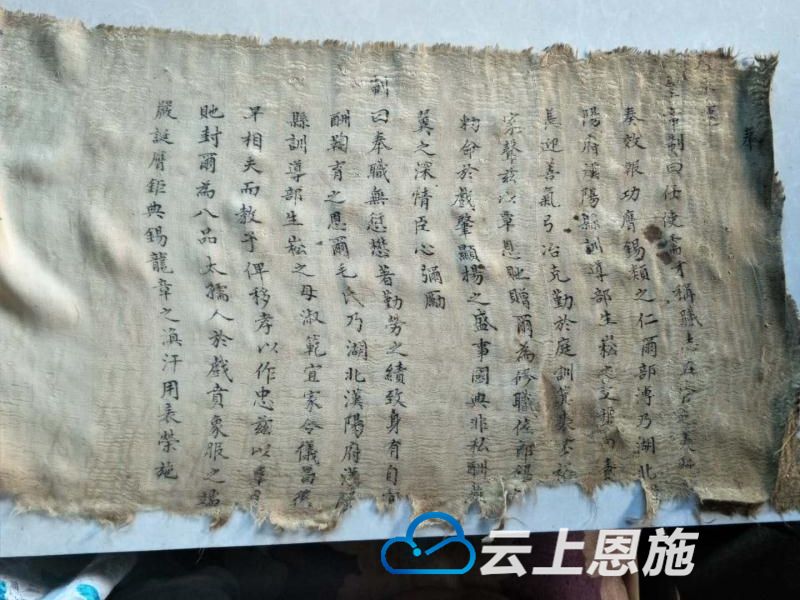 奉
皇帝制曰仕使需才稱職志在官
奏效服功膺錫類之仁爾部溥乃湖北
陽府漢陽縣訓導部生崧之父
善迎善氣弓冶克勤於庭訓
家聲茲以覃恩貤贈爾為修職佐郎錫
特命於戲肇顯揚之盛事國典非私酬
冀之深情臣心彌勵
制曰奉職無愆懋著勤勞之績致身有自
酬鞠育之恩爾毛氏乃湖北漢陽府漢陽
縣訓導部生崧之母淑範宜家令儀昌後
早相夫而教子俾移孝以作忠茲以覃恩
貤封爾為八品太孺人於戲賁象服之端
嚴誕膺鉅典錫龍章之渙汗用表榮施
云上恩施